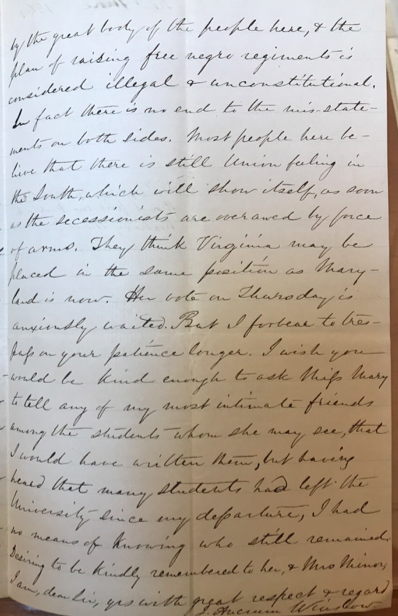 by the great body of the people here, & the
plan of raising free negro regiments is
considered illegal & unconstitutional.
In fact there is no end to the mis-state-
ments on both sides. Most people here be-
live that there is still Union feeling in
the South, which will show itself, as soon
as the secessionists are overawed by force
of arms. They think Virginia may be
placed in the same position as Mary-
land is now. Her vote on Thursday is
anxiously waited. But I forbear to tres-
pass on your patience longer. I wish you
would be kind enough to ask Miss Mary
to tell any of my most intimate friends
among the students whom she may see, that
I would have written them, but having
heard that many students had left the
University since my departure, I had
no means of knowing who still remained.
Desiring to be kindly remembered to her, & Mrs Minor,
I am, dear Sir, yrs with great respect & regard
J. Ancrum Winslow